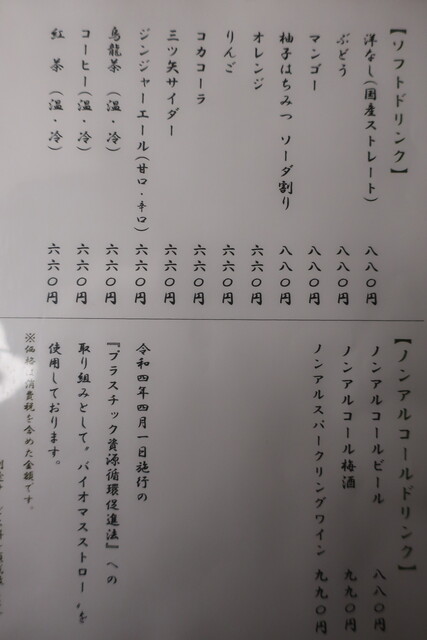 【ソフトドリンク】
洋なし(国産ストレート) 八八〇円
ぶどう 八八〇円
マンゴー 八八〇円
柚子はちみつ ソーダ割り 八八〇円
オレンジ 六六〇円
りんご 六六〇円
コカコーラ 六六〇円
三ツ矢サイダー 六六〇円
ジンジャーエール(甘口・辛口) 六六〇円
烏龍茶 (温・冷) 六六〇円
コーヒー(温・冷) 六六〇円
紅 茶 (温・冷) 六六〇円
【ノンアルコールドリンク】
ノンアルコールビール 八八〇円
ノンアルコール梅酒 九九〇円
ノンアルスパークリングワイン 九九〇円
令和四年四月一日施行の
『プラスチック資源循環促進法』への
取り組みとして〝バイオマスストロー〟を
使用しております。
※価格は消費税を含めた金額です。